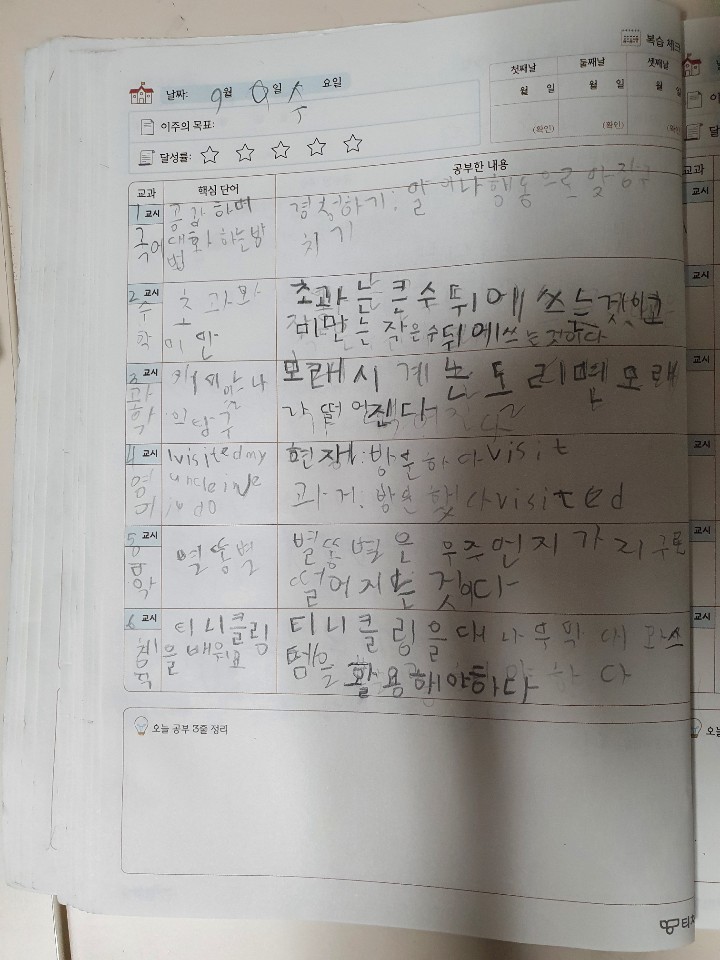 복습 체크
첫째날 둘째날 셋째날
월 일 월 일 월 일
(확인) (확인) (확인)
날짜: 9월 일 수 요일
이주의 목표:
달성률: ☆ ☆ ☆ ☆ ☆
교과 핵심 단어 공부한 내용
1 교시
국어
공감하며
대화하는방
법
경청하기: 말 이나 행동으로 맞장구
치기
2 교시
수
학
초과와
미만
초과는 큰 수 뒤에 쓰는것이고
미만는 작은수 뒤에쓰는것이다
3 교시
과
학
의 탐구
모래시계는 돌리면 모래
가 떨어진다
4 교시
영
어
I visited my
uncle in
현재: 방문하다 visit
과거: 방문했다 visited
5 교시
음
악
별똥별
별똥별은 우주먼지가
떨어지는 것이다
6 교시
체
육
티니클링
을 배워요
티니클링을 대나무 막대와
템을 활용해야하다
오늘 공부 3줄 정리